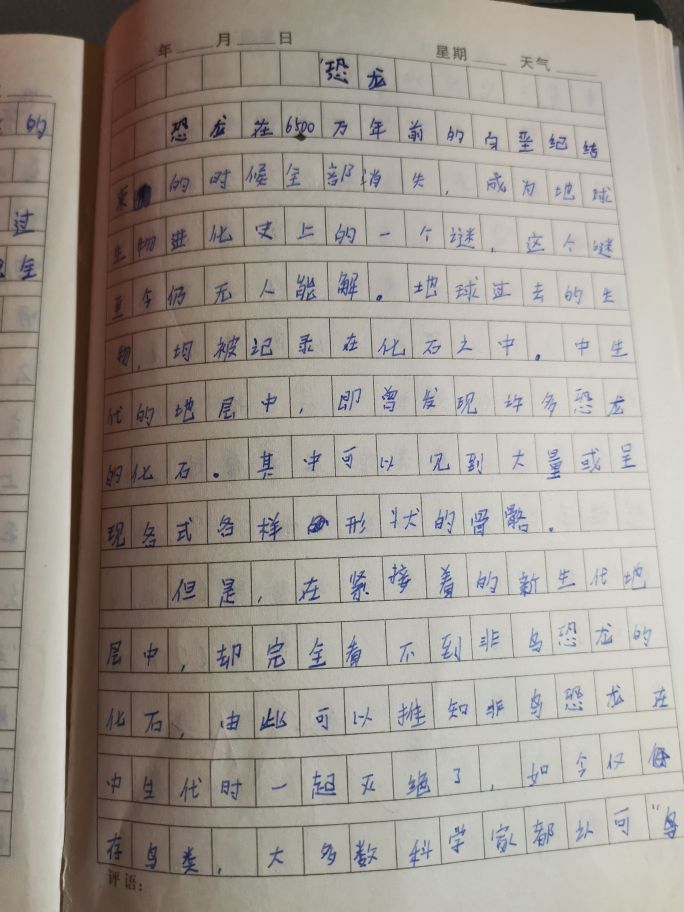 的
过
年 月 日 星期 天气
恐龙
恐龙在6500万年前的白垩纪结
的时候全部消失，成为地球
生物进化史上的一个谜，这个谜
至今仍无人能解。地球过去的生
物，均被记录在化石之中。中生
代的地层中，即曾发现许多恐龙
的化石。其中可以见到大量或呈
现各式各样形状的骨骼。
但是，在紧接着的新生代地
层中，却完全看不到非鸟恐龙的
化石，由此可以推知非鸟恐龙在
中生代时一起灭绝了，如今仅
存鸟类，大多数科学家都认可“鸟
评语：